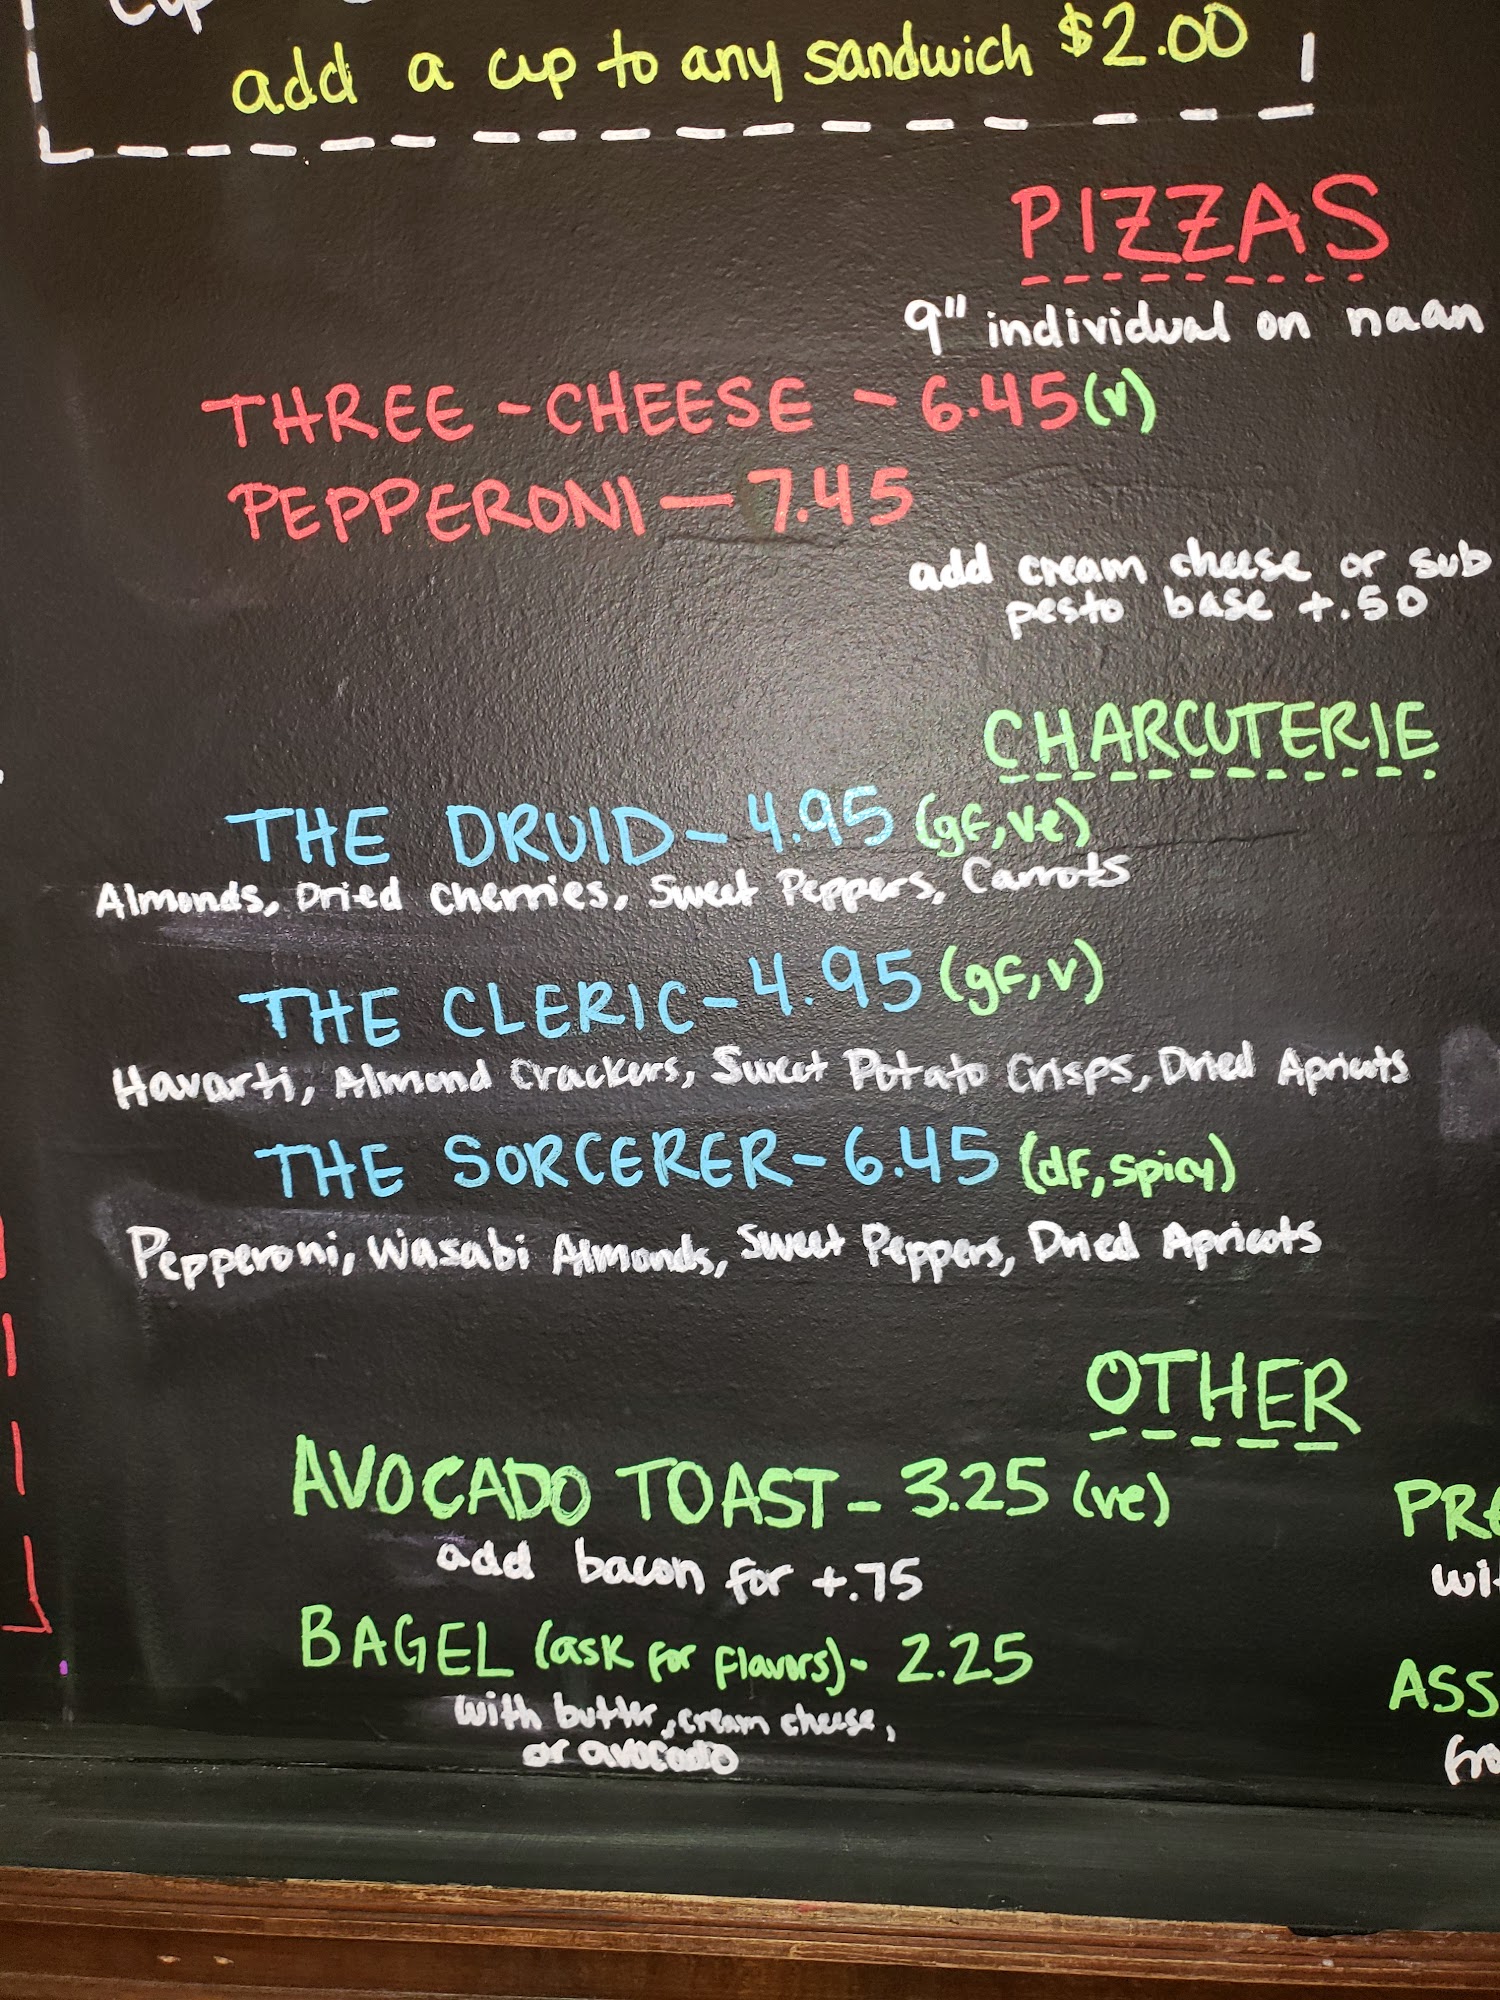 add a cup to any sandwich $2.00
PIZZAS
9" individual on naan
THREE-CHEESE - 6.45 (v)
PEPPERONI — 7.45
add cream cheese or sub
pesto base +.50
CHARCUTERIE
THE DRUID - 4.95 (gf, ve)
Almonds, Dried Cherries, Sweet Peppers, Carrots
THE CLERIC - 4.95 (gf, v)
Havarti, Almond Crackers, Sweet Potato Crisps, Dried Apricots
THE SORCERER - 6.45 (df, spicy)
Pepperoni, Wasabi Almonds, Sweet Peppers, Dried Apricots
OTHER
AVOCADO TOAST - 3.25 (ve)
add bacon for +.75
BAGEL (ask for flavors) - 2.25
with butter, cream cheese,
or avocado